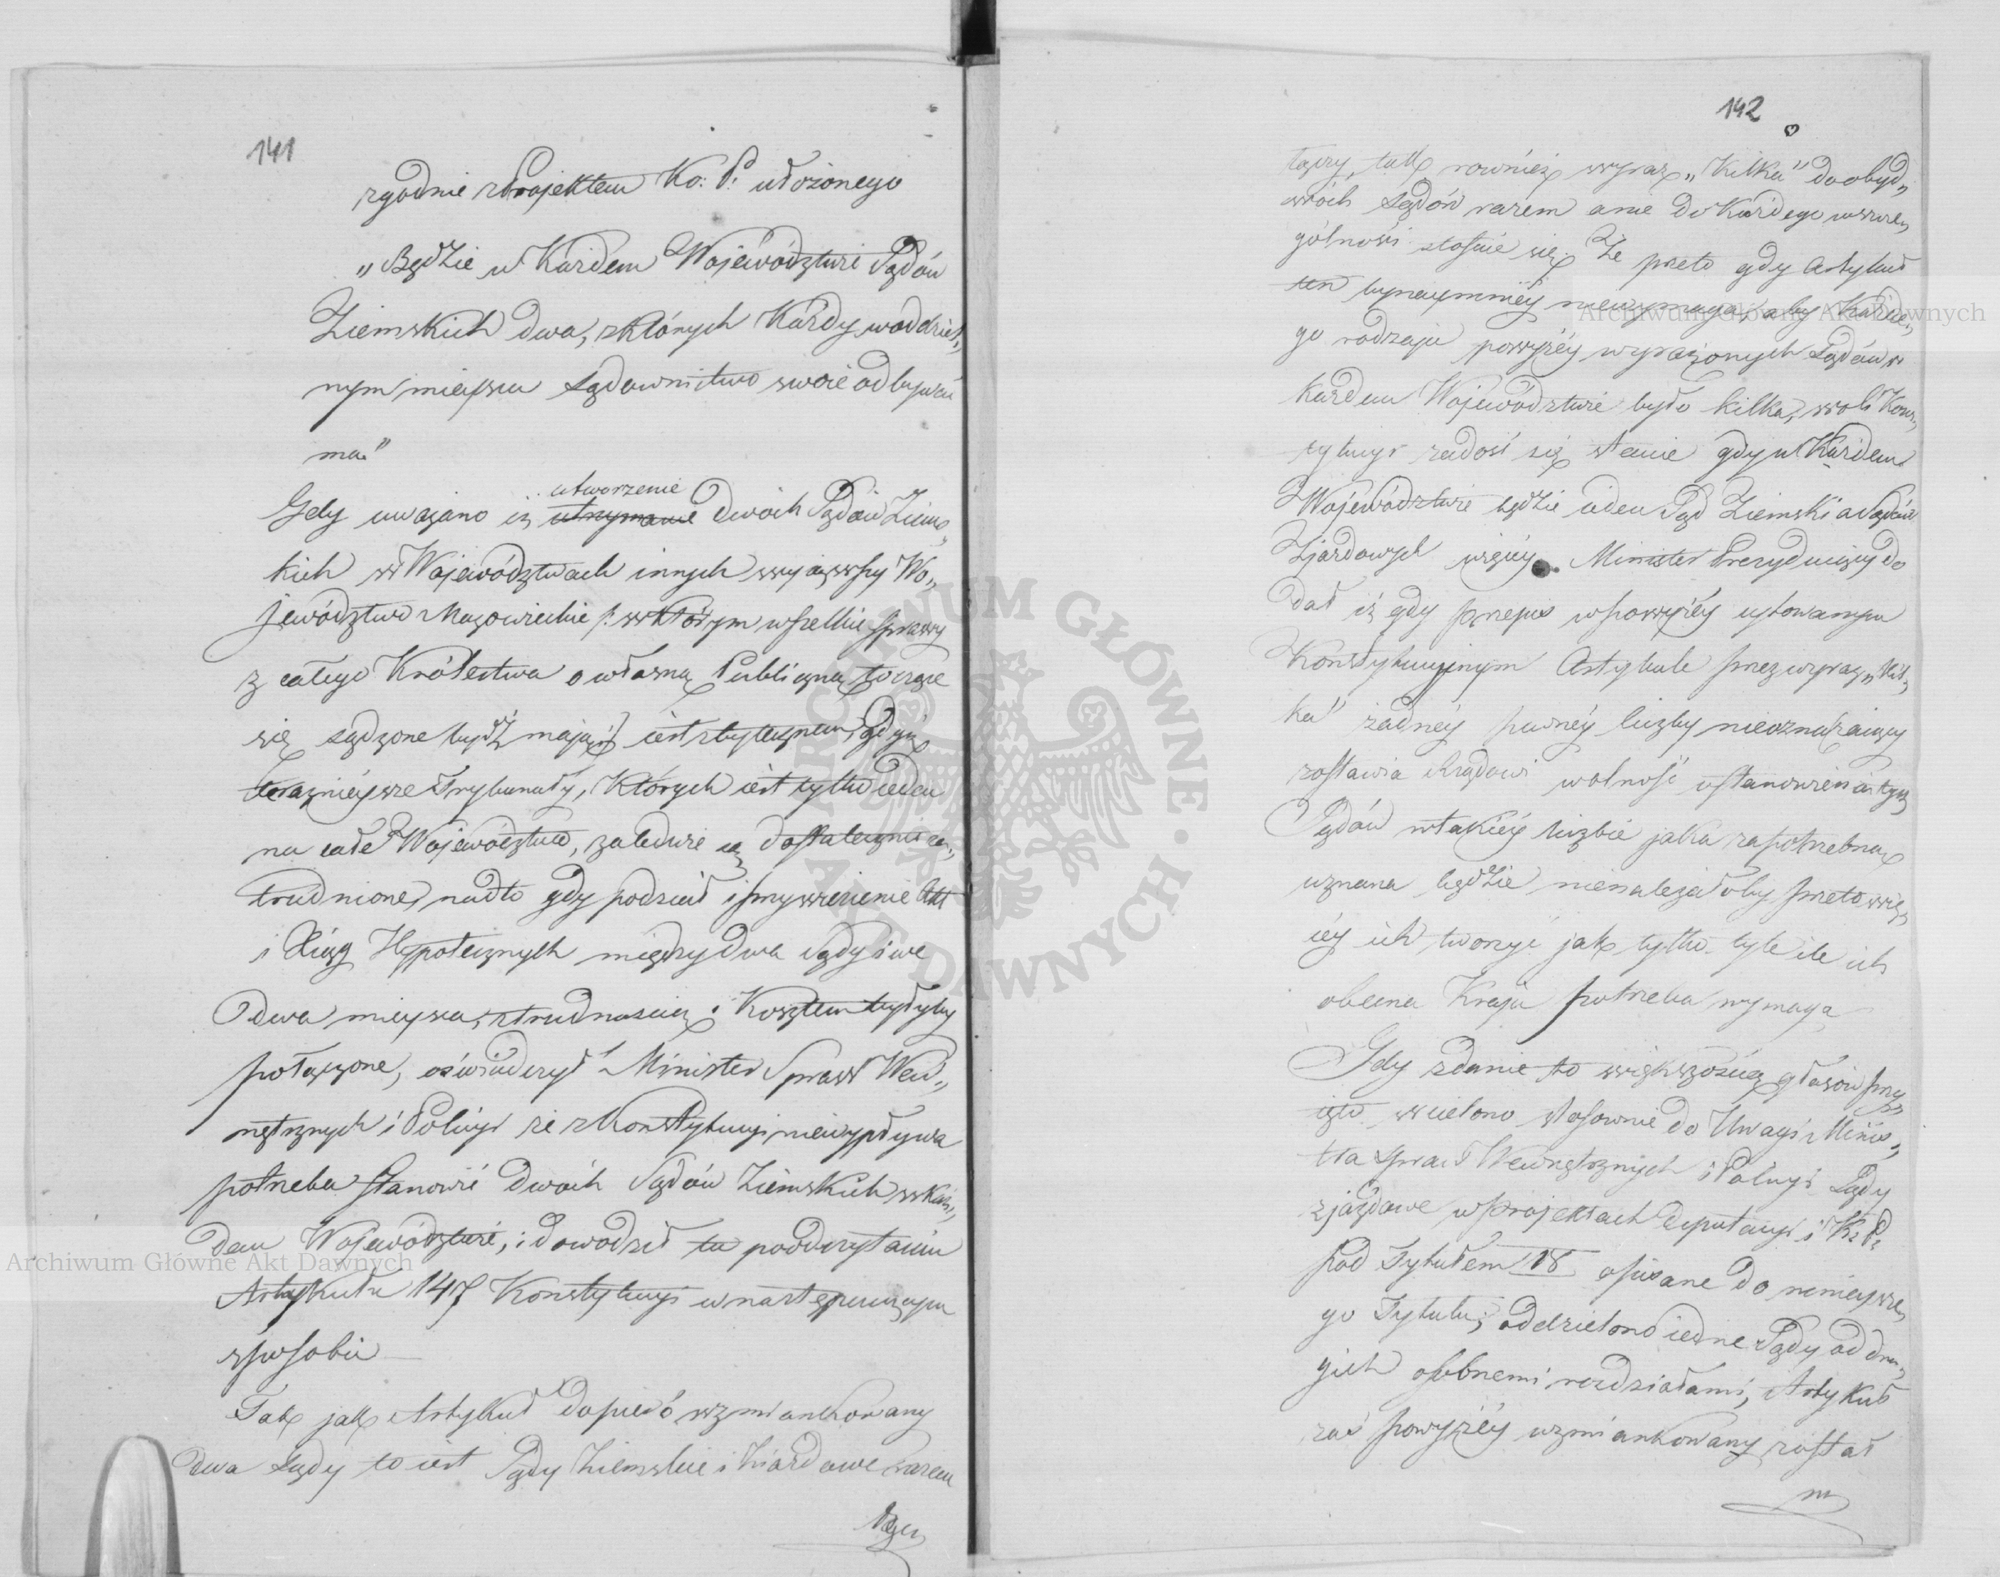 141
zgodnie z Projektem Ko: P: ułożonego
„Będzie w Każdem Województwie Sądów
Ziemskich dwa, z których Każdy w oddziel„
nym mieyscu sądownictwo swoie odbywać
ma"
utworzenie
Gdy uważano iż utrzymanie dwóch Sądów Ziems„
kich w Województwach innych wyiąwszy Wo„
jewództwo Mazowieckie /: w którym wszelkie sprawy
z całego Królestwa o własną Publiczną toczące
się sądzone bydź mają :/ iest zbytecznem, gdyż
teraznieysze Trybunały, Których iest tylko ieden
na całe Województwo, zaledwie są dostatecznie za„
trudnione, nadto gdy podział i przywiezienie Akt
i Xiąg Hypotecznych między dwa Sądy i we
dwa mieysca, z trudnością i Kosztem byłyby
połączone, oświadczył Minister Spraw Wew„
nętrznych i Policyi że z Konstytucyi niewypływa
potrzeba stanowić dwóch Sądów Ziemskich w Każ„
dem Województwie, i dowodził to poddczytaniu
Artykułu 147 Konstytucyi w następuiącym
sposobie
Tak jak Artykuł dopiero wzmiankowany
dwa Sądy to iest Sądy Ziemskie i Ziazdowe razem
łączy
142
łączy, tak również wyraz „Kilka" do obyd„
wóch Sądów razem a nie do Każdego w szcze„
gólności stosuie się. Że przeto gdy Artykuł
ten bynaymniéy niewymaga, aby Każde„
go rodzaju powyżéy wyrażonych Sądów w
każdem Województwie było kilka, woli Kons„
tytucyi zadość się stanie gdy w Każdem
Województwie będzie ieden Sąd Ziemski a Sądów
Zjazdowych więcéy. Minister Prezyduiący do
dał iż gdy przepis w powyżéy cytowanym
Konstytucyjnym Artykule przez wyraz „Kil„
ka" żadnéy pewnéy liczby nieoznaczaiący
zostawia Rządowi wolność ustanowienia tych
Sądów w takiéy liczbie jaka za potrzebną
uznana będzie nienależałoby przeto wię„
céy ich tworzyć jak tylko tyle ile ich
obecna Kraju potrzeba wymaga
Gdy zdanie to większością głosów przy„
ięto wcielono stosownie do Uwagi Minis„
tra Spraw Wewnętrznych i Policyi Sądy
zjazdowe w Projektach Deputacyi i K: P:
pod Tytułem 18 opisane do ninieysze„
go Tytułu; oddzielono iedne Sądy od dru„
gich osobnemi rozdziałami, Artykuł
zaś powyżéy wzmiankowany został